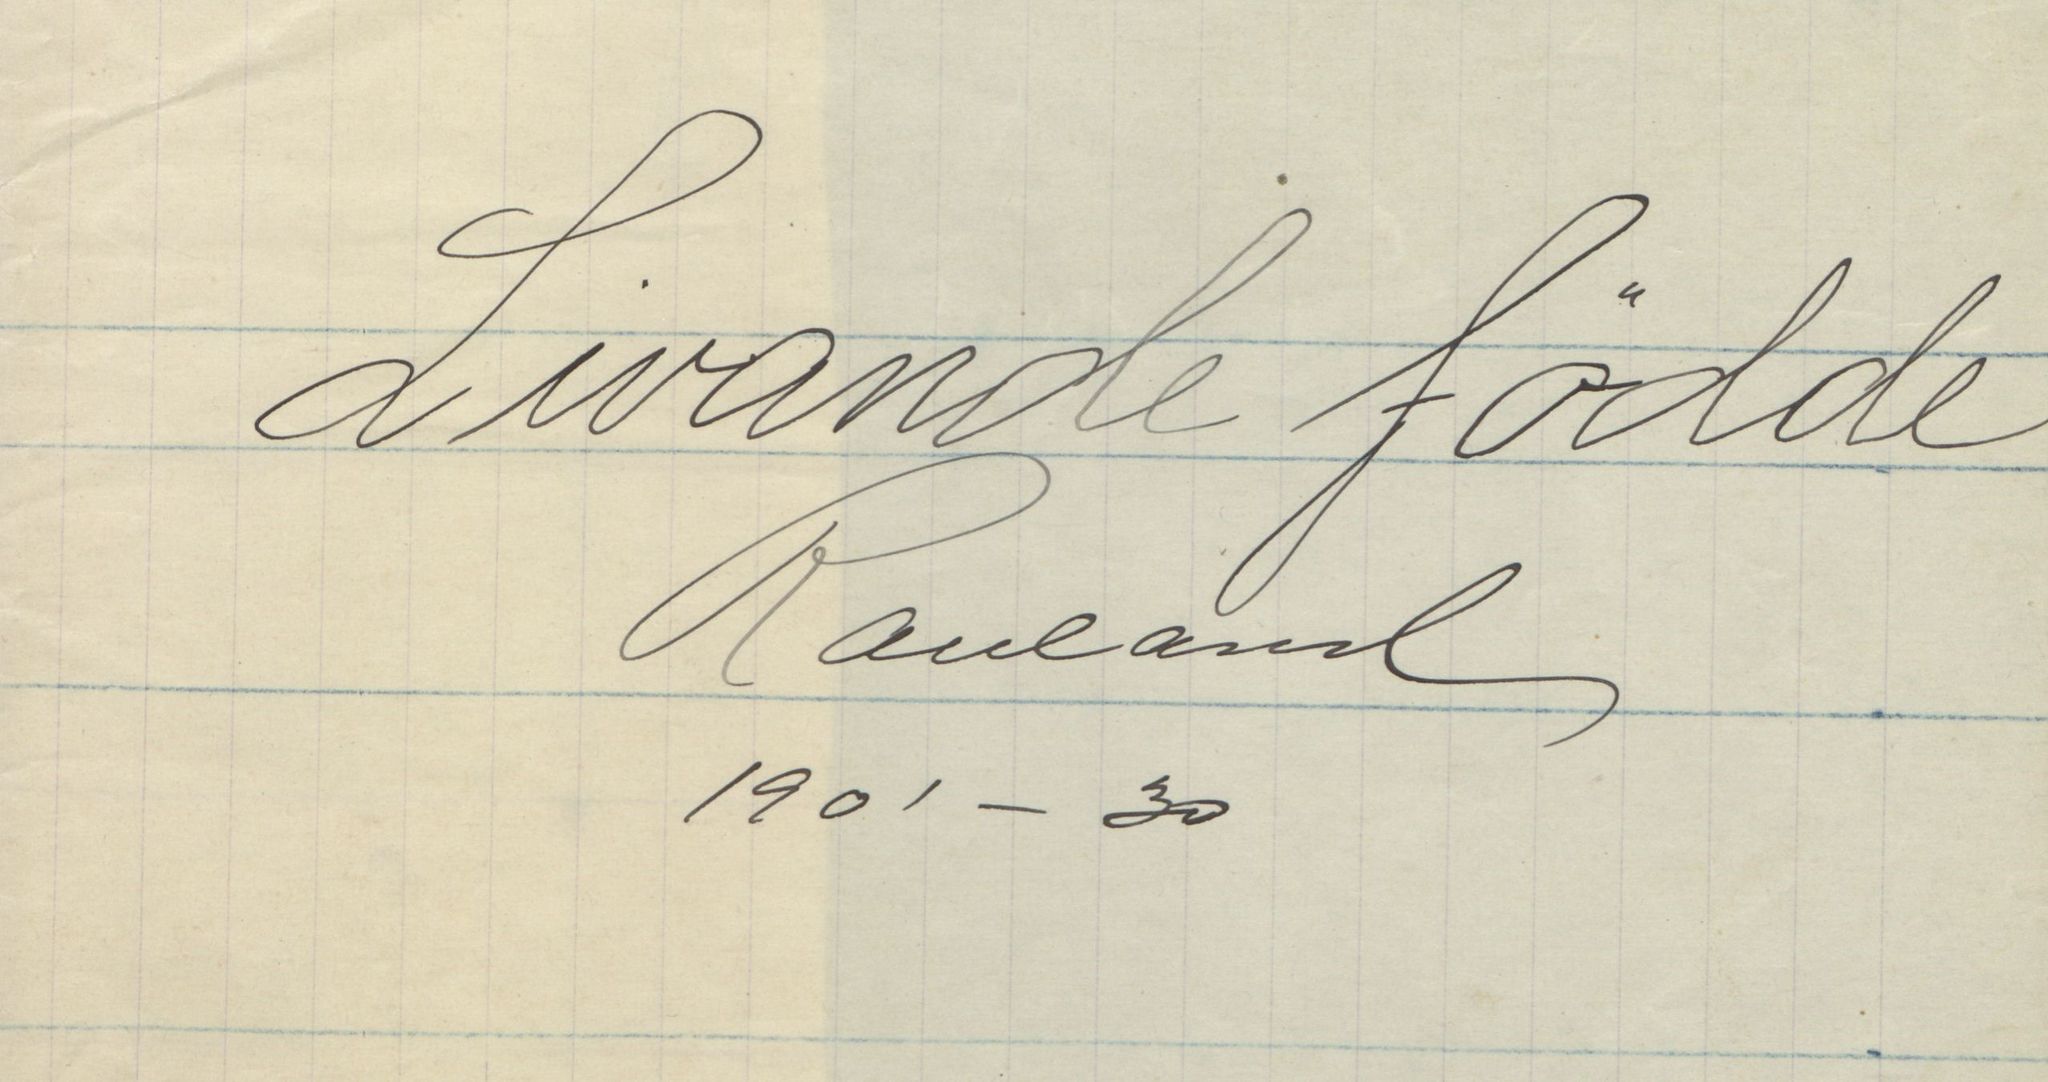 Livande födde
Rauland
1901 - 30